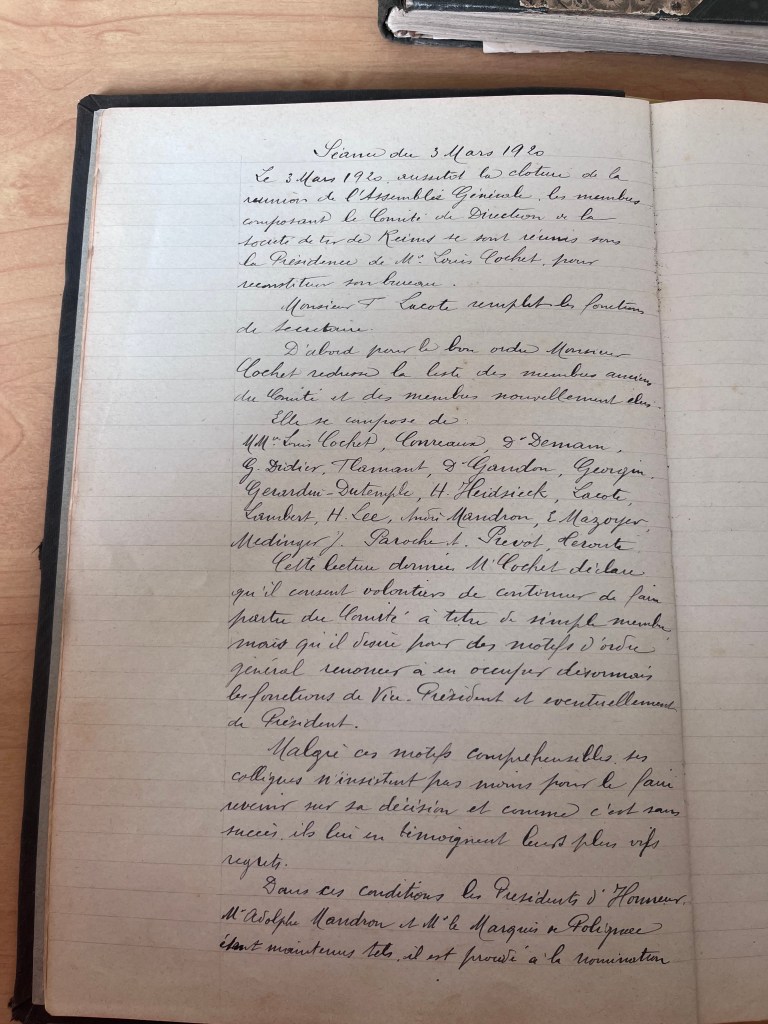 Séance du 3 Mars 1920
Le 3 Mars 1920, aussitôt la cloture de la
reunion de l'Assemblée Générale, les membres
composant le Comité de Direction de la
Societé de tir de Reims se sont réunis sous
la Présidence de Mr Louis Cochet, pour
reconstituer son bureau.
Monsieur F Lacote remplit les fonctions
de Secretaire.
D'abord pour le bon ordre Monsieur
Cochet redresse la liste des membres anciens
du Comité et des membres nouvellement élus.
Elle se compose de
MMrs Louis Cochet, Conreaux, Dr Demain,
G. Didier, Flamant, Dr Gandon, Georgin,
Gerardin-Dutemple, H. Heidsieck, Lacote,
Lambert, H. Lee, André Mandron, E Mazoyer,
Medinger J. Paroche A. Prevot,
Cette lecture donnée Mr Cochet déclare
qu'il consent volontiers de continuer de faire
partie du Comité à titre de simple membre
mais qu'il desire pour des motifs d'ordre
général renoncer à en occuper désormais
les fonctions de Vice-Président et eventuellement
de Président.
Malgré ces motifs compréhensibles, ses
collègues n'insistent pas moins pour le faire
revenir sur sa décision et comme c'est sans
succès, ils lui en témoignent leurs plus vifs
regrets.
Dans ces conditions les Presidents d'Honneur
Mr Adolphe Mandron et Mr le Marquis de Polignac
étant maintenus tels, il est procédé à la nomination